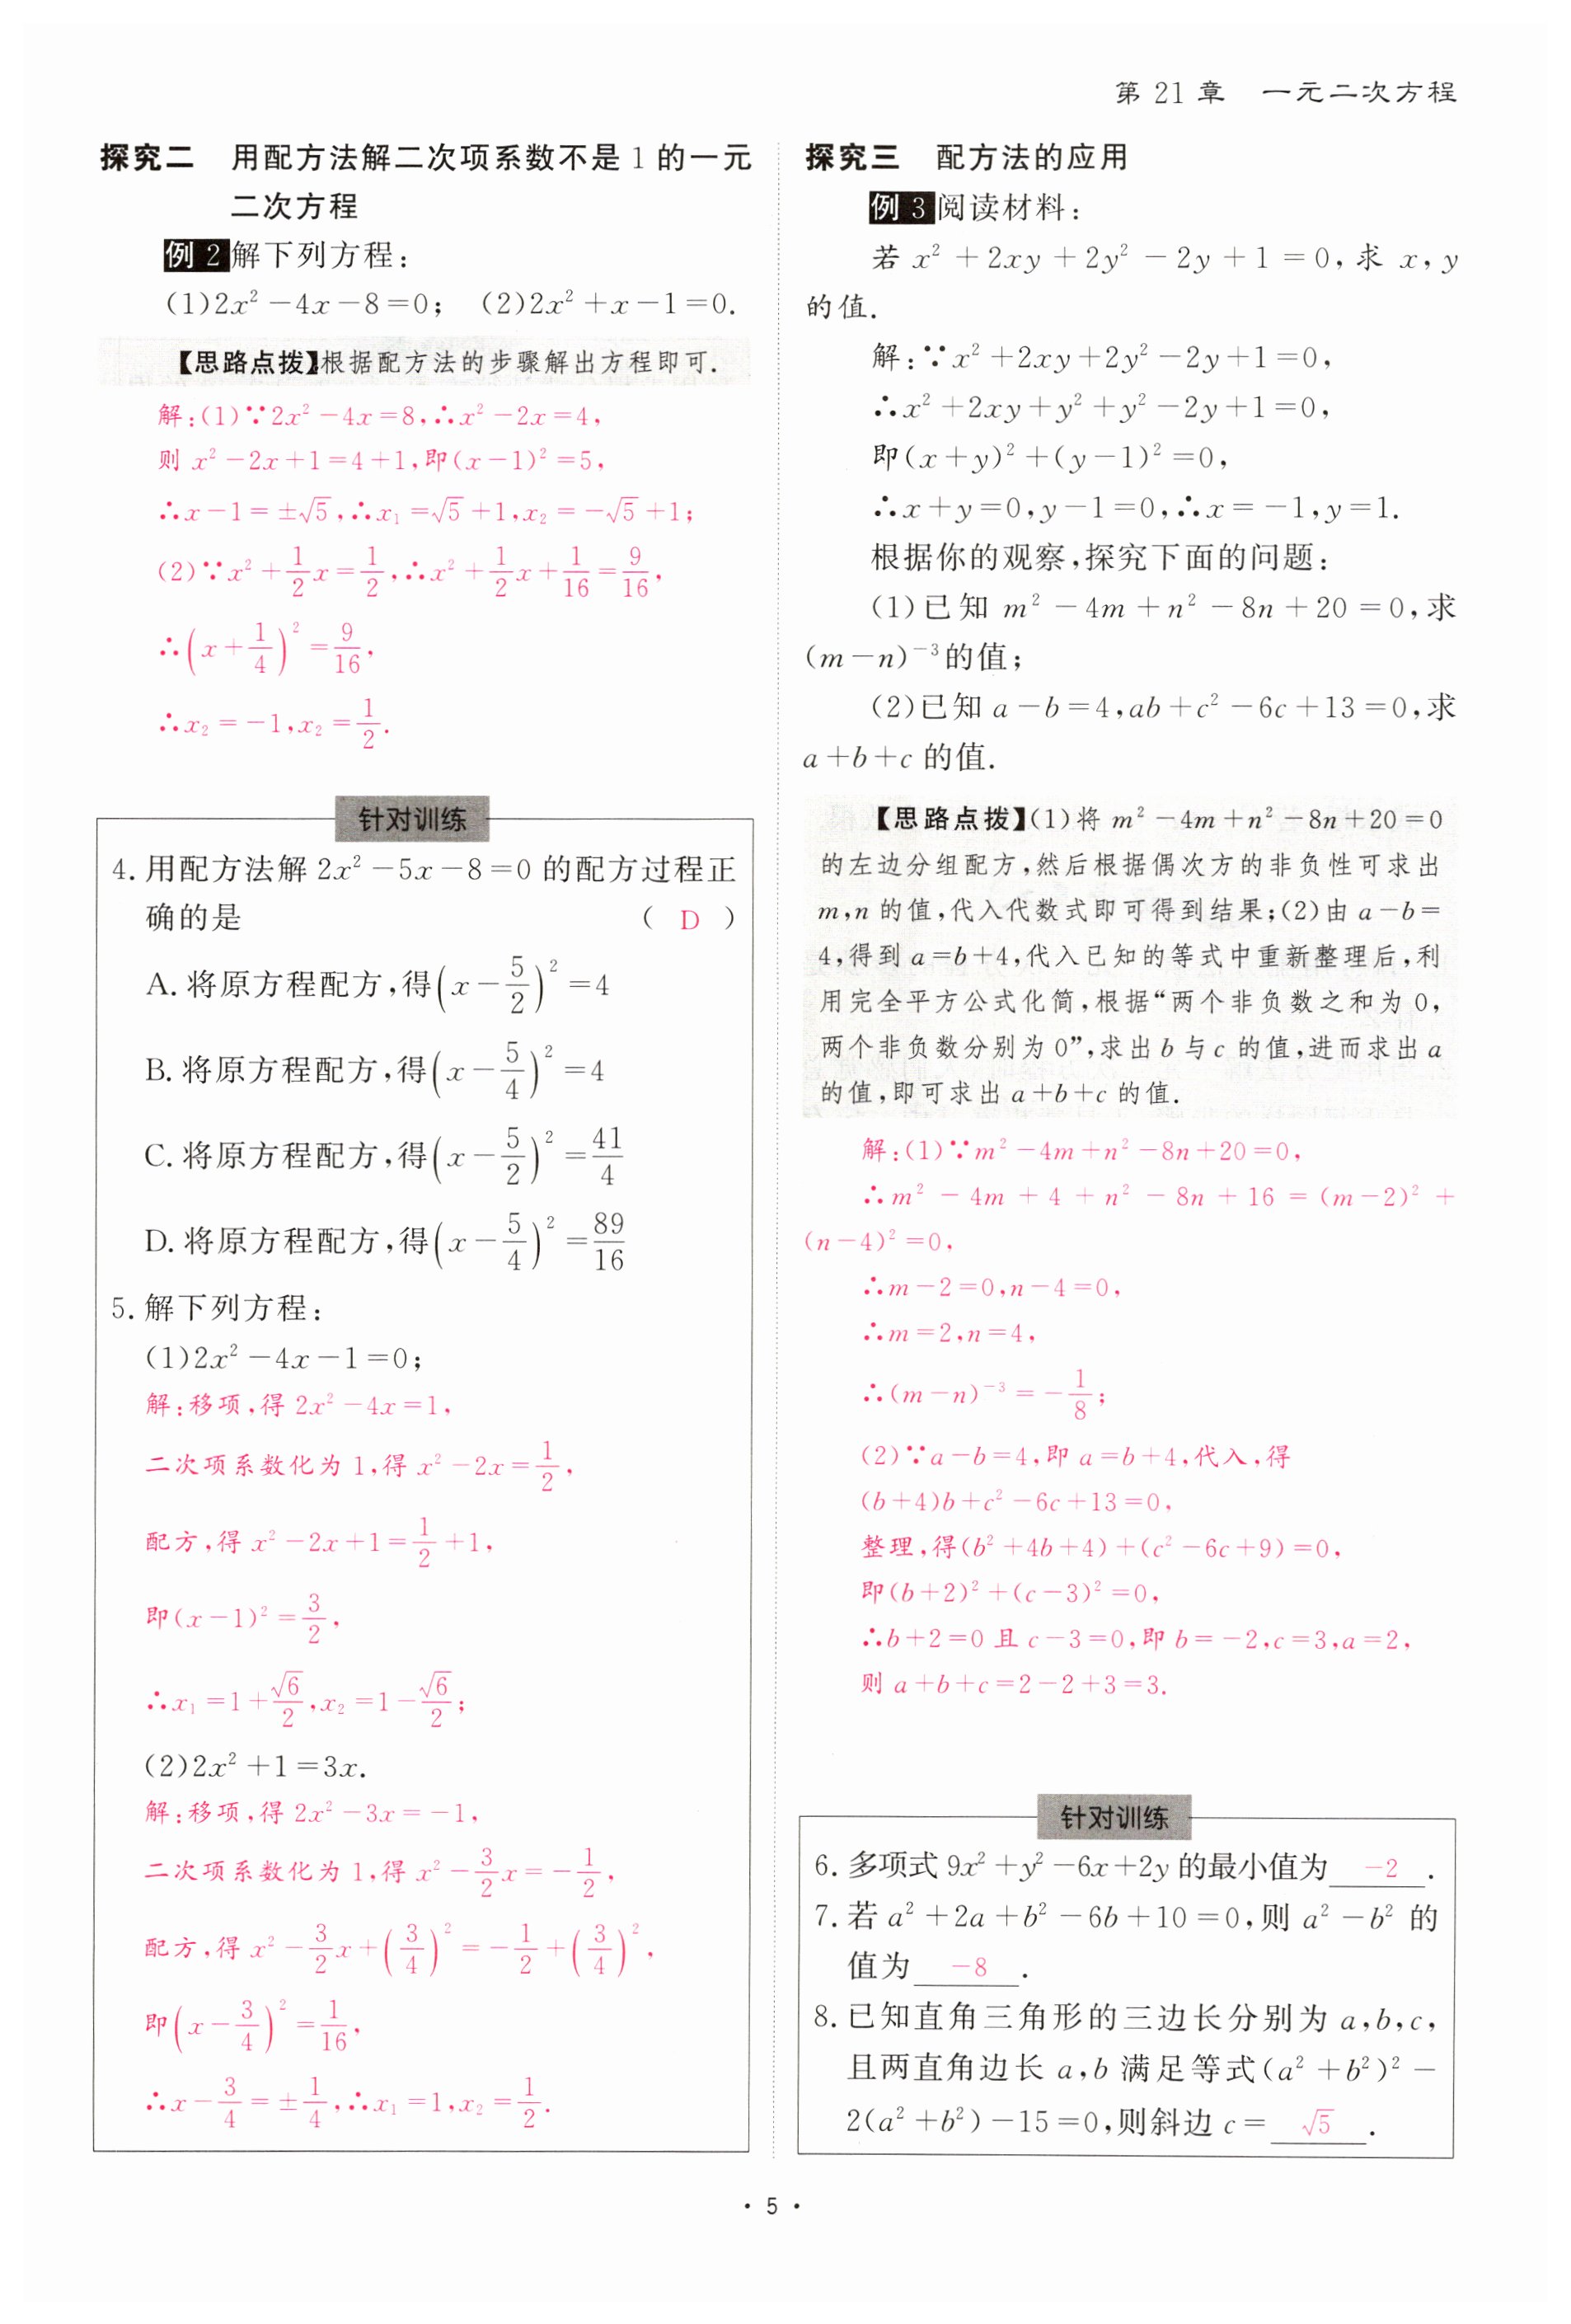 第 21 章 一元二次方程
探究二 用配方法解二次项系数不是 1 的一元
二次方程
例 2 解下列方程:
(1)2x²-4x-8=0; (2)2x²+x-1=0.
【思路点拨】根据配方法的步骤解出方程即可.
解:(1)∵2x²-4x=8,∴x²-2x=4,
则 x²-2x+1=4+1,即(x-1)²=5,
∴x-1=±√5,∴x₁=√5+1,x₂=-√5+1;
(2)∵x²+1/2x=1/2,∴x²+1/2x+1/16=9/16,
∴(x+1/4)²=9/16,
∴x₂=-1,x₂=1/2.
针对训练
4. 用配方法解 2x²-5x-8=0 的配方过程正
确的是 ( D )
A. 将原方程配方,得(x-5/2)²=4
B. 将原方程配方,得(x-5/4)²=4
C. 将原方程配方,得(x-5/2)²=41/4
D. 将原方程配方,得(x-5/4)²=89/16
5. 解下列方程:
(1)2x²-4x-1=0;
解:移项,得 2x²-4x=1,
二次项系数化为 1,得 x²-2x=1/2,
配方,得 x²-2x+1=1/2+1,
即(x-1)²=3/2,
∴x₁=1+√6/2,x₂=1-√6/2;
(2)2x²+1=3x.
解:移项,得 2x²-3x=-1,
二次项系数化为 1,得 x²-3/2x=-1/2,
配方,得 x²-3/2x+(3/4)²=-1/2+(3/4)²,
即(x-3/4)²=1/16,
∴x-3/4=±1/4,∴x₁=1,x₂=1/2.
探究三 配方法的应用
例 3 阅读材料:
若 x²+2xy+2y²-2y+1=0,求 x,y
的值.
解:∵x²+2xy+2y²-2y+1=0,
∴x²+2xy+y²+y²-2y+1=0,
即(x+y)²+(y-1)²=0,
∴x+y=0,y-1=0,∴x=-1,y=1.
根据你的观察,探究下面的问题:
(1)已知 m²-4m+n²-8n+20=0,求
(m-n)⁻³的值;
(2)已知 a-b=4,ab+c²-6c+13=0,求
a+b+c 的值.
【思路点拨】(1)将 m²-4m+n²-8n+20=0
的左边分组配方,然后根据偶次方的非负性可求出
m,n 的值,代入代数式即可得到结果;(2)由 a-b=
4,得到 a=b+4,代入已知的等式中重新整理后,利
用完全平方公式化简,根据“两个非负数之和为 0,
两个非负数分别为 0”,求出 b 与 c 的值,进而求出 a
的值,即可求出 a+b+c 的值.
解:(1)∵m²-4m+n²-8n+20=0,
∴m²-4m+4+n²-8n+16=(m-2)²+
(n-4)²=0,
∴m-2=0,n-4=0,
∴m=2,n=4,
∴(m-n)⁻³=-1/8;
(2)∵a-b=4,即 a=b+4,代入,得
(b+4)b+c²-6c+13=0,
整理,得(b²+4b+4)+(c²-6c+9)=0,
即(b+2)²+(c-3)²=0,
∴b+2=0 且 c-3=0,即 b=-2,c=3,a=2,
则 a+b+c=2-2+3=3.
针对训练
6. 多项式 9x²+y²-6x+2y 的最小值为 -2 .
7. 若 a²+2a+b²-6b+10=0,则 a²-b² 的
值为 -8 .
8. 已知直角三角形的三边长分别为 a,b,c,
且两直角边长 a,b 满足等式(a²+b²)²-
2(a²+b²)-15=0,则斜边 c= √5 .
• 5 •